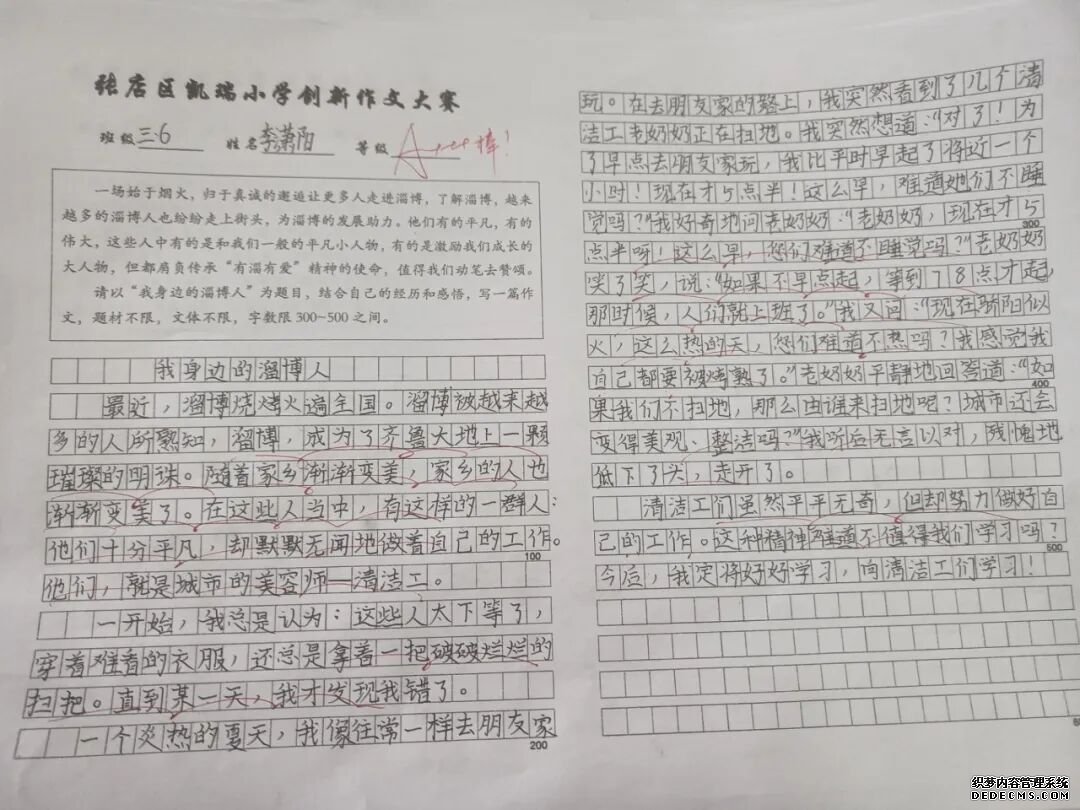 张店区凯瑞小学创新作文大赛
班级 三.6 姓名 李潇阳 等级 A 棒!
一场始于烟火,归于真诚的邂逅让更多人走进淄博,了解淄博,越来
越多的淄博人也纷纷走上街头,为淄博的发展助力。他们有的平凡,有的
伟大,这些人中有的是和我们一般的平凡小人物,有的是激励我们成长的
大人物,但都肩负传承“有淄有爱”精神的使命,值得我们动笔去赞颂。
请以“我身边的淄博人”为题目,结合自己的经历和感悟,写一篇作
文,题材不限,文体不限,字数限 300~500 之间。
我身边的淄博人
最近,淄博烧烤火遍全国。淄博被越来越
多的人所熟知,淄博,成为了齐鲁大地上一颗
璀璨的明珠。随着家乡渐渐变美,家乡的人也
渐渐变美了。在这些人当中,有这样的一群人:
他们十分平凡,却默默无闻地做着自己的工作。
100
他们,就是城市的美容师—清洁工。
一开始,我总是认为:这些人太下等了,
穿着难看的衣服,还总是拿着一把破破烂烂的
扫把。直到某一天,我才发现我错了。
一个炎热的夏天,我像往常一样去朋友家
200
玩。在去朋友家的路上,我突然看到了几个清
洁工老奶奶正在扫地。我突然想道:“对了!为
了早点去朋友家玩,我比平时早起了将近一个
小时!现在才5点半!这么早,难道她们不睡
觉吗?”我好奇地问老奶奶:“老奶奶,现在才5
300
点半呀!这么早,您们难道不睡觉吗?”老奶奶
笑了笑,说:“如果不早点起,等到78点才起,
那时候,人们就上班了。”我又问:“现在骄阳似
火,这么热的天,您们难道不热吗?我感觉我
自己都要被烤熟了。”老奶奶平静地回答道:“如
400
果我们不扫地,那么由谁来扫地呢?城市还会
变得美观、整洁吗?”我听后无言以对,残愧地
低下了头,走开了。
清洁工们虽然平平无奇,但却努力做好自
己的工作。这种精神难道不值得我们学习吗?
500
今后,我定将好好学习,向清洁工们学习!
织梦内容管理系统
DEDECMS.COM